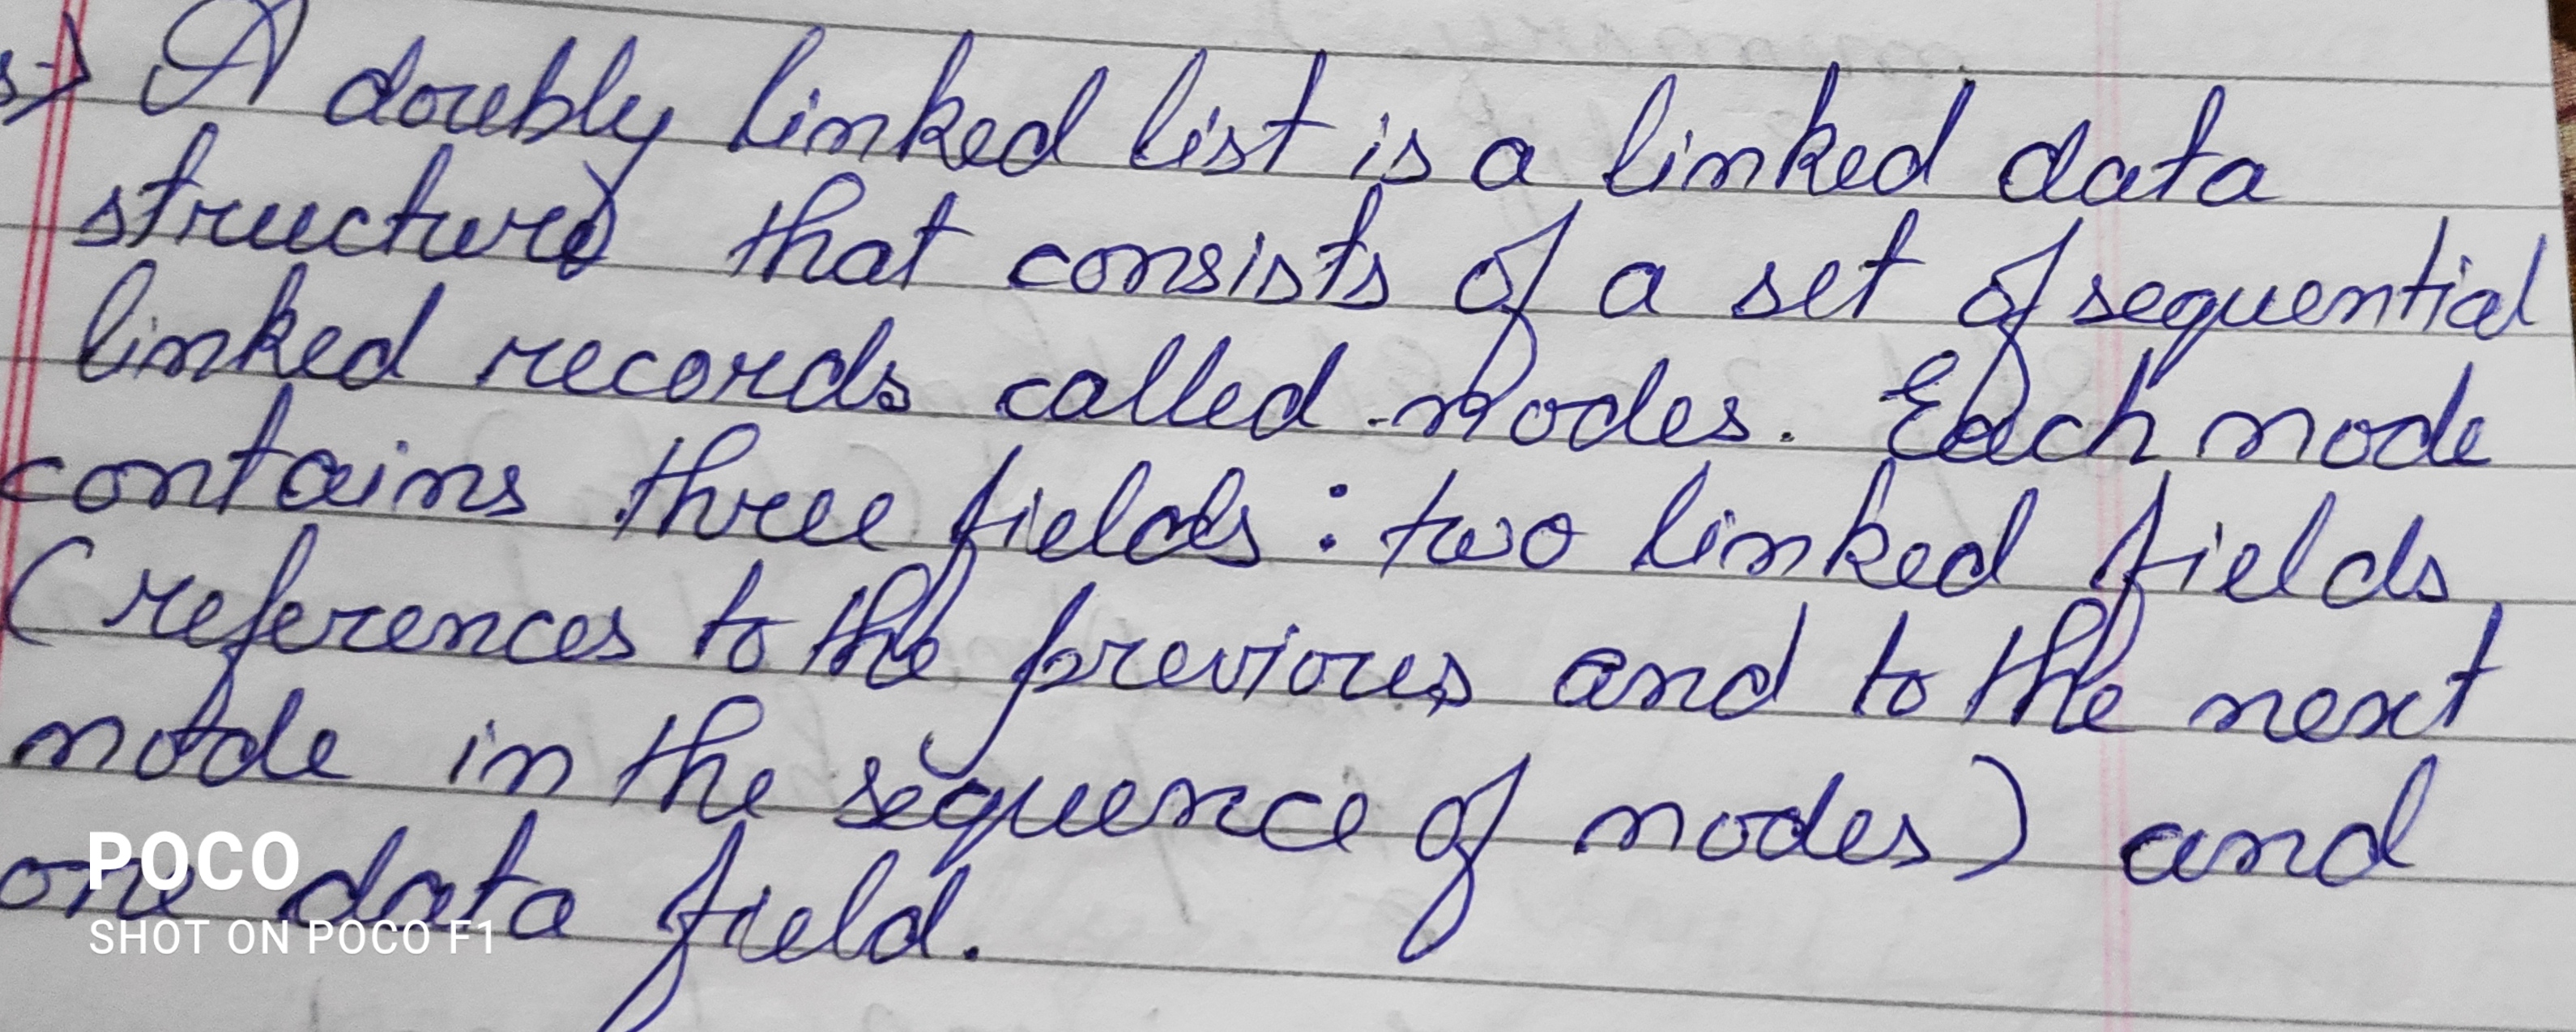 s→ A doubly linked list is a linked data
structure that consists of a set of sequential
linked records called nodes. Each node
contains three fields : two linked fields
(references to the previous and to the next
node in the sequence of nodes) and
one data field.
POCO
SHOT ON POCO F1